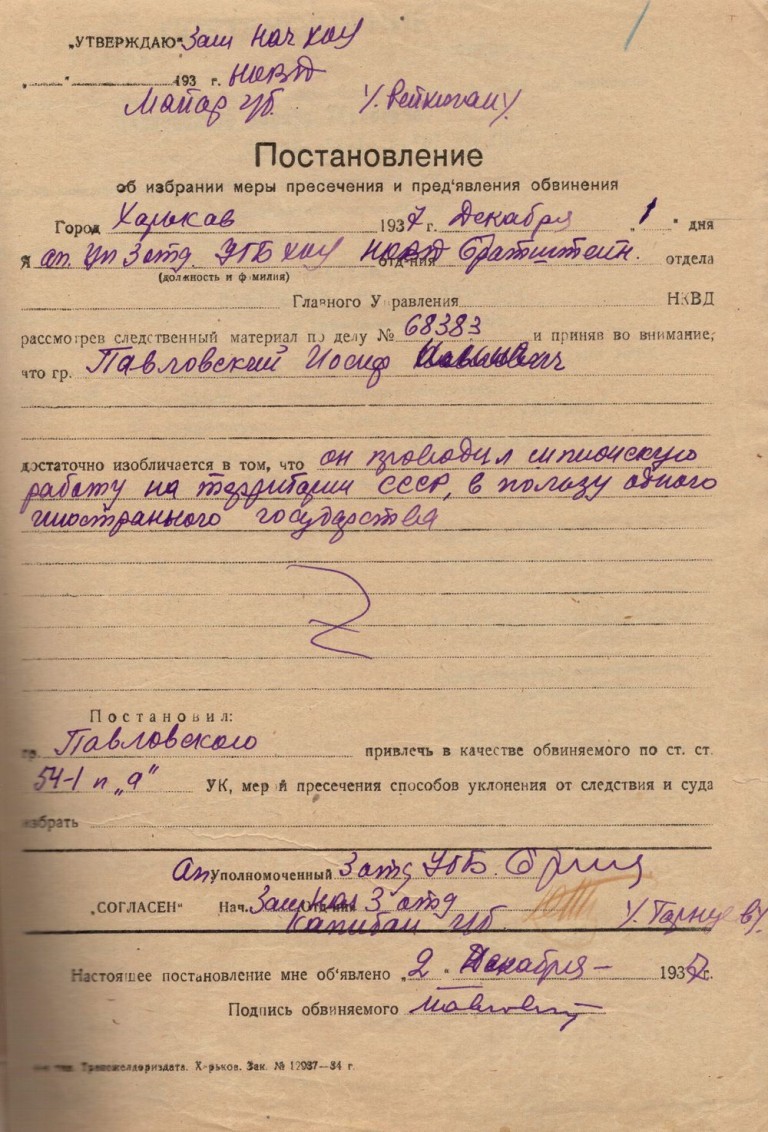 „УТВЕРЖДАЮ“ Зам нач ХОУ
„ “ 193 г. НКВД
Майор г/б. /Рейхман/
Постановление
об избрании меры пресечения и пред‘явления обвинения
Город Харьков 1937 г. Декабря „1“ дня
Я оп. уп 3 отд. УГБ ХОУ НКВД отд-ния Братштейн. отдела
(должность и фамилия)
Главного Управления НКВД
рассмотрев следственный материал по делу № 68383 и приняв во внимание,
что гр. Павловский Иосиф
достаточно изобличается в том, что он проводил шпионскую
работу на территории СССР, в пользу одного
иностранного государства
Постановил:
гр. Павловского привлечь в качестве обвиняемого по ст. ст.
54-1 п „а“ УК, мерой пресечения способов уклонения от следствия и суда
избрать
Оп Уполномоченный 3 отд УГБ.
„СОГЛАСЕН“ Нач. Зам Нач 3 отд
Капитан г/б.
Настоящее постановление мне об‘явлено „2“ Декабря – 1937 г.
Подпись обвиняемого
Трансжелдориздата. Харьков. Зак. № 12937—34 г.